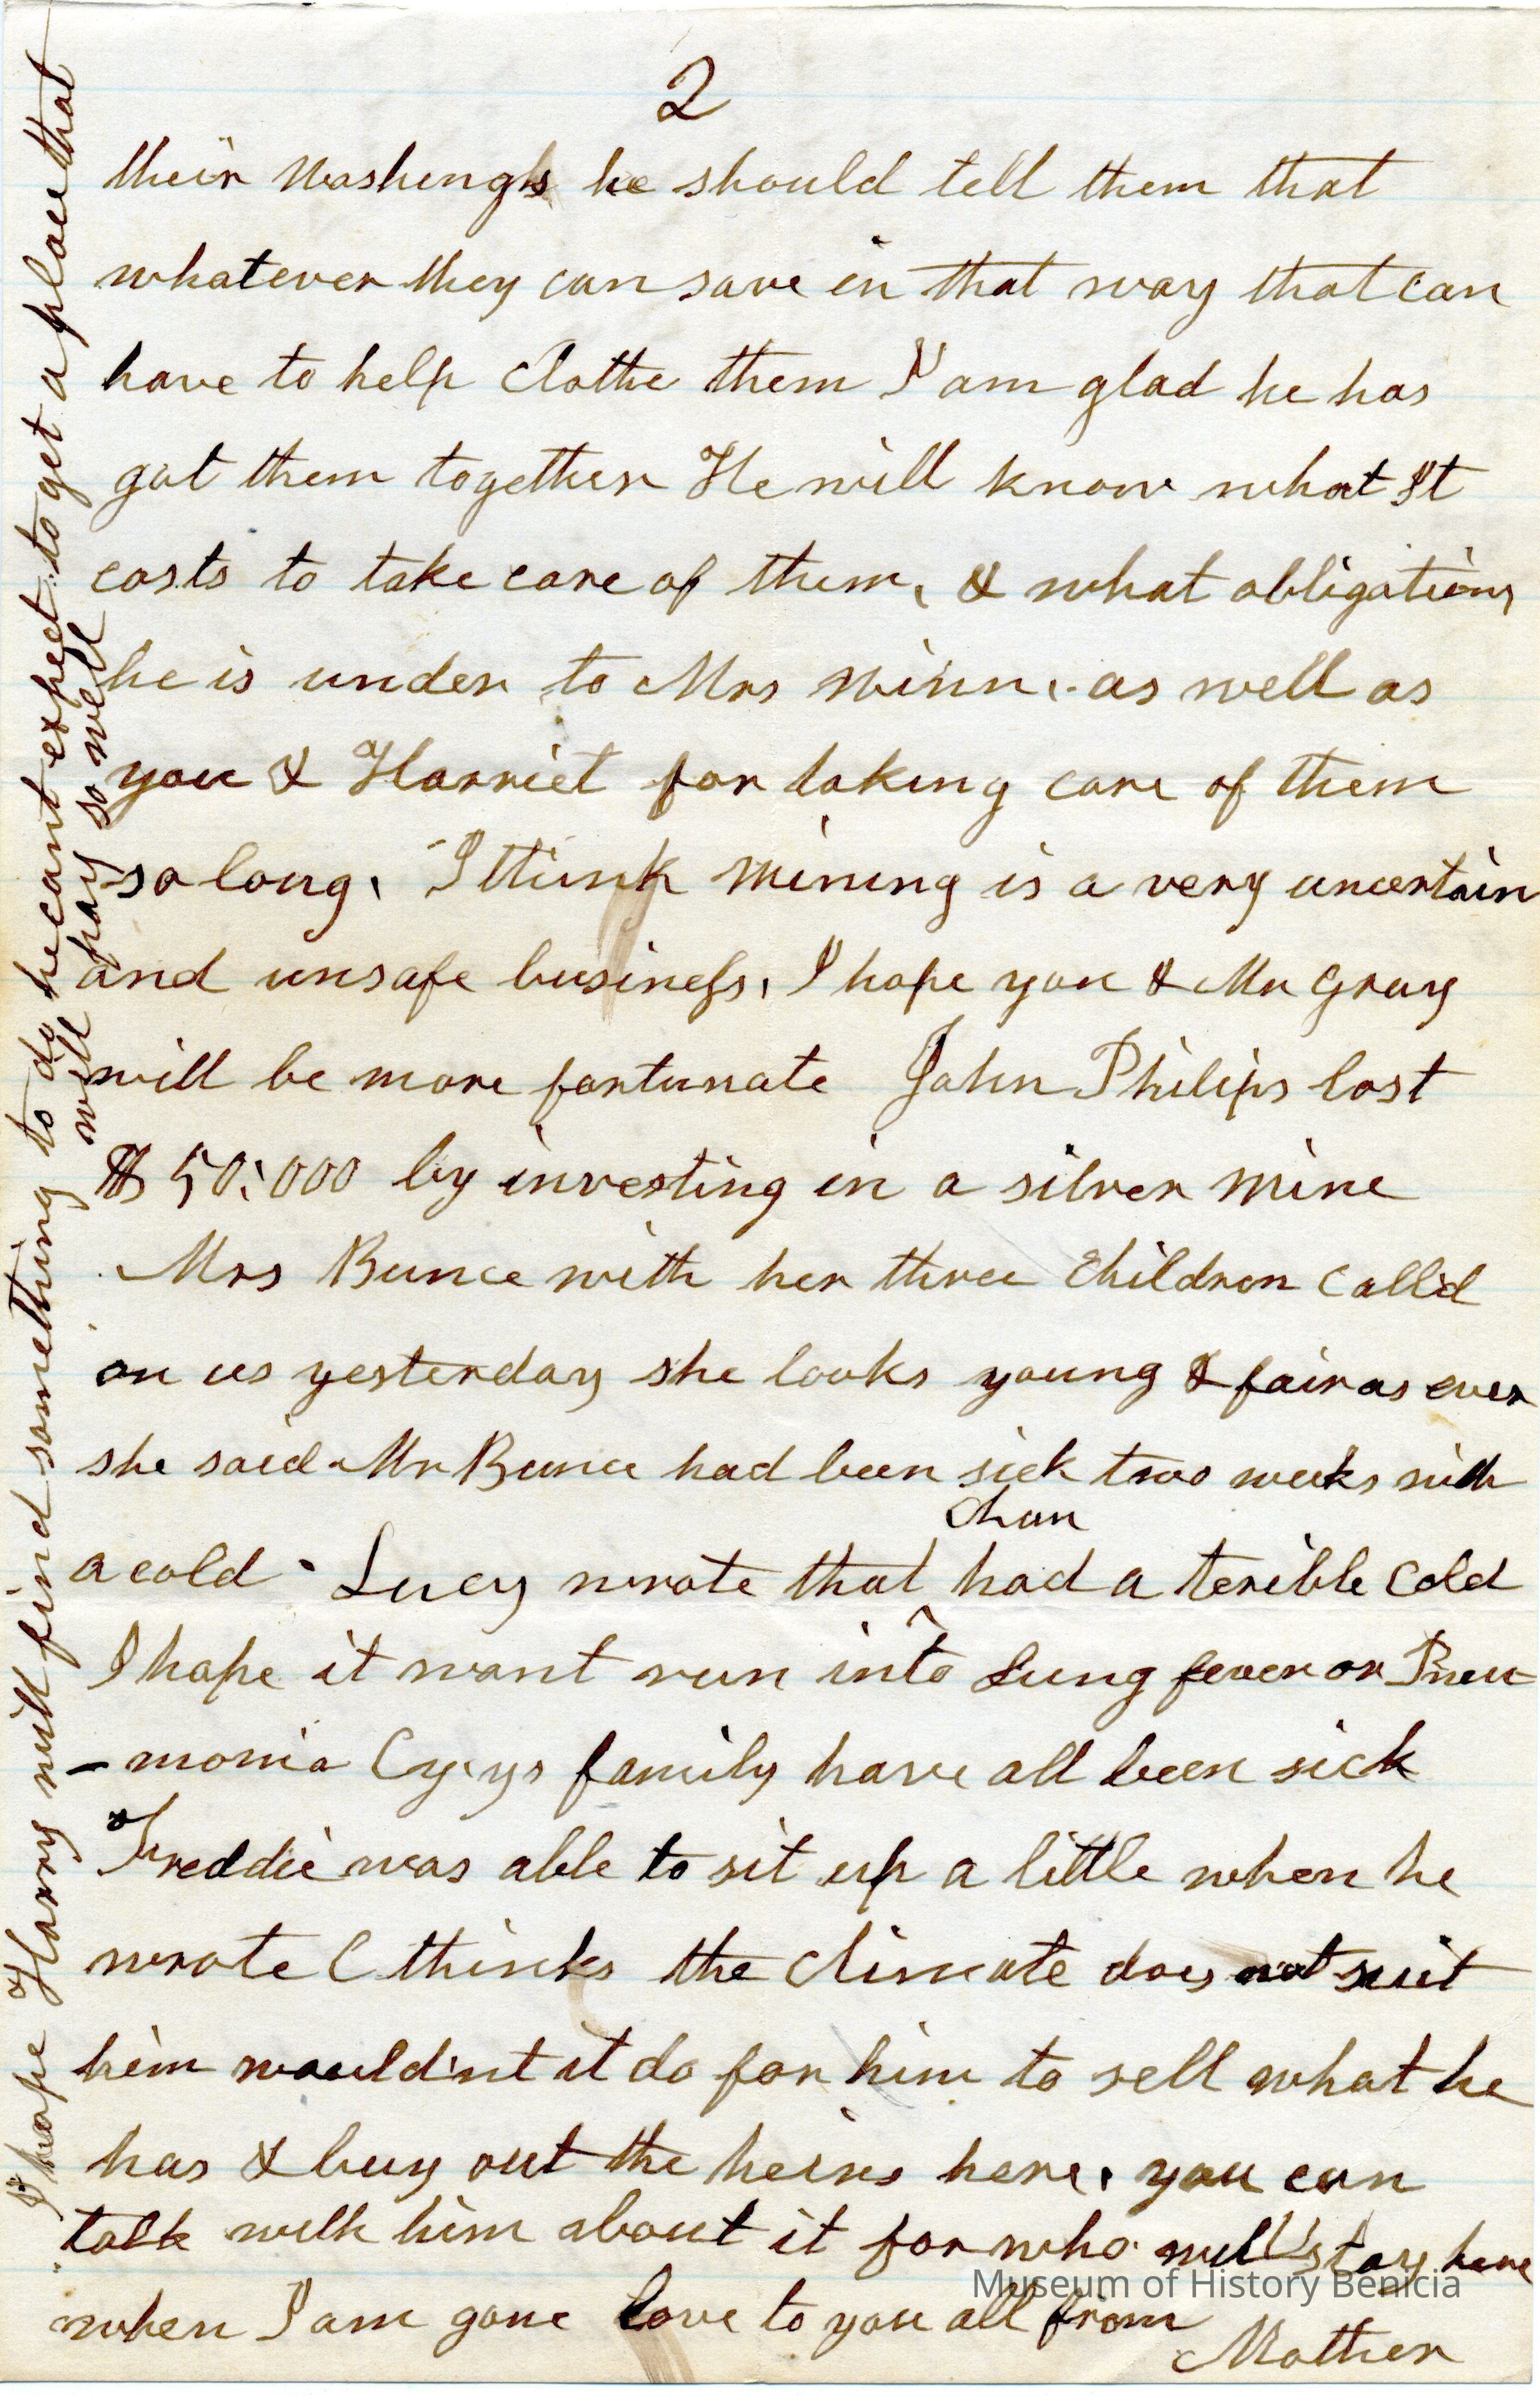 2
their Washings he should tell them that
whatever they can save in that way that can
have to help Clothe them I am glad he has
got them together He will know what It
costs to take care of them, & what obligations
he is under to Mrs Winn, as well as
you & Harriet for taking care of them
so long, I think Mining is a very uncertain
and unsafe business, I hope you & Mr Gray
will be more fortunate John Philips lost
$50,000 by investing in a silver Mine
Mrs Bunce with her three Children Call'd
on us yesterday she looks young & fair as ever
she said Mr Bunce had been sick two weeks with
Chan
a cold Lucy wrote that ^ had a terible Cold
I hope it wont run into Lung fever or Pneu
-monia Cy,ys family have all been sick
Freddie was able to sit up a little when he
wrote C thinks the Climate does not suit
him would'nt it do for him to sell what he
has & buy out the heirs here, you can
talk with him about it for who will stay here
when I am gone Love to you all from
Mother
I hope Harry will find something to do he cant expect to get a place that
will pay so well
Museum of History Benicia